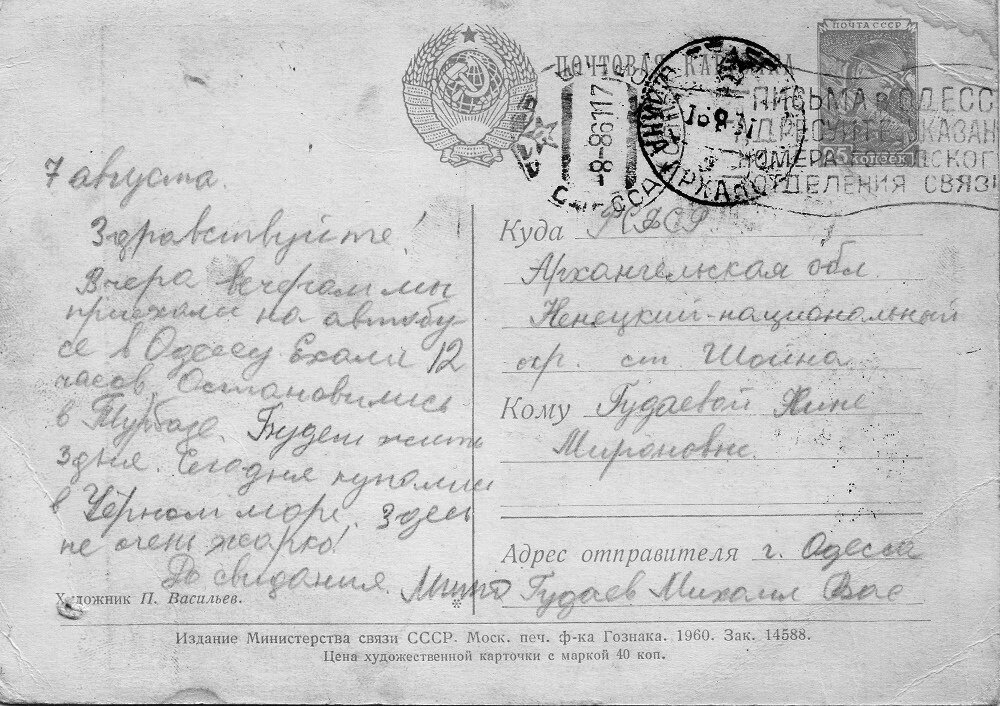 ПОЧТА СССР
ПОЧТОВАЯ КАРТОЧКА
ПИСЬМА В ОДЕСС
АДРЕСУЙТЕ УКАЗАН
НОМЕРА СКОГО
ОТДЕЛЕНИЯ СВЯЗИ
25 КОПЕЕК
7 августа.
Здравствуйте!
Вчера вечером мы
приехали на автобу
се в Одессу Ехали 12
часов. Остановились
в Турбазе. Будем жить
3 дня. Сегодня купались
в Чёрном море. Здесь
не очень жарко!
До свидания.
Художник П. Васильев.
Куда РСФСР
Архангельская обл.
Ненецкий-национальный
окр. ст. Шойна
Кому Гудаевой Нине
Мироновне
Адрес отправителя г. Одесса
Гудаев Михаил Вас
Издание Министерства связи СССР. Моск. печ. ф-ка Гознака. 1960. Зак. 14588.
Цена художественной карточки с маркой 40 коп.